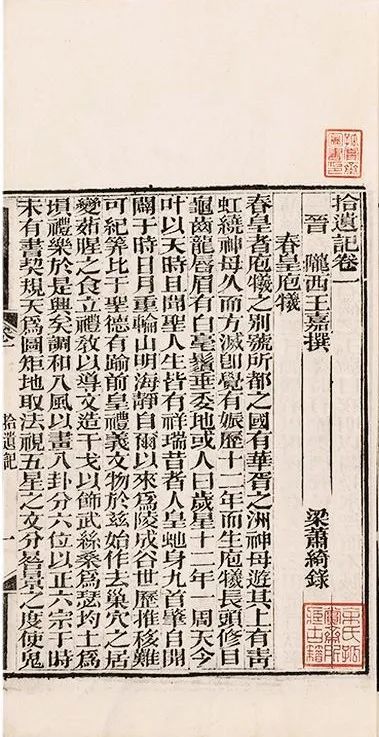 拾遺記卷一
晉　隴西王嘉撰　梁蕭綺錄
春皇庖犧
春皇者庖犧之別號所都之國有華胥之洲神母遊其上有青
虹繞神母久而方滅卽覺有娠歷十二年而生庖犧長頭修目
龜齒龍脣眉有白毫鬚垂委地或人曰歲星十二年一周天今
叶以天時且聞聖人生皆有祥瑞昔者人皇虵身九首肇自開
闢于時日月重輪山明海靜自爾以來爲陵成谷世歷推移難
可紀筭比于聖德有踰前皇禮義文物於兹始作去巢穴之居
變茹腥之食立禮敎以導文造干戈以飾武絲桑爲瑟均土爲
塤禮樂於是興矣調和八風以畫八卦分六位以正六宗于時
未有書契規天爲圖矩地取法視五星之文分晷景之度使鬼
拾遺記
一